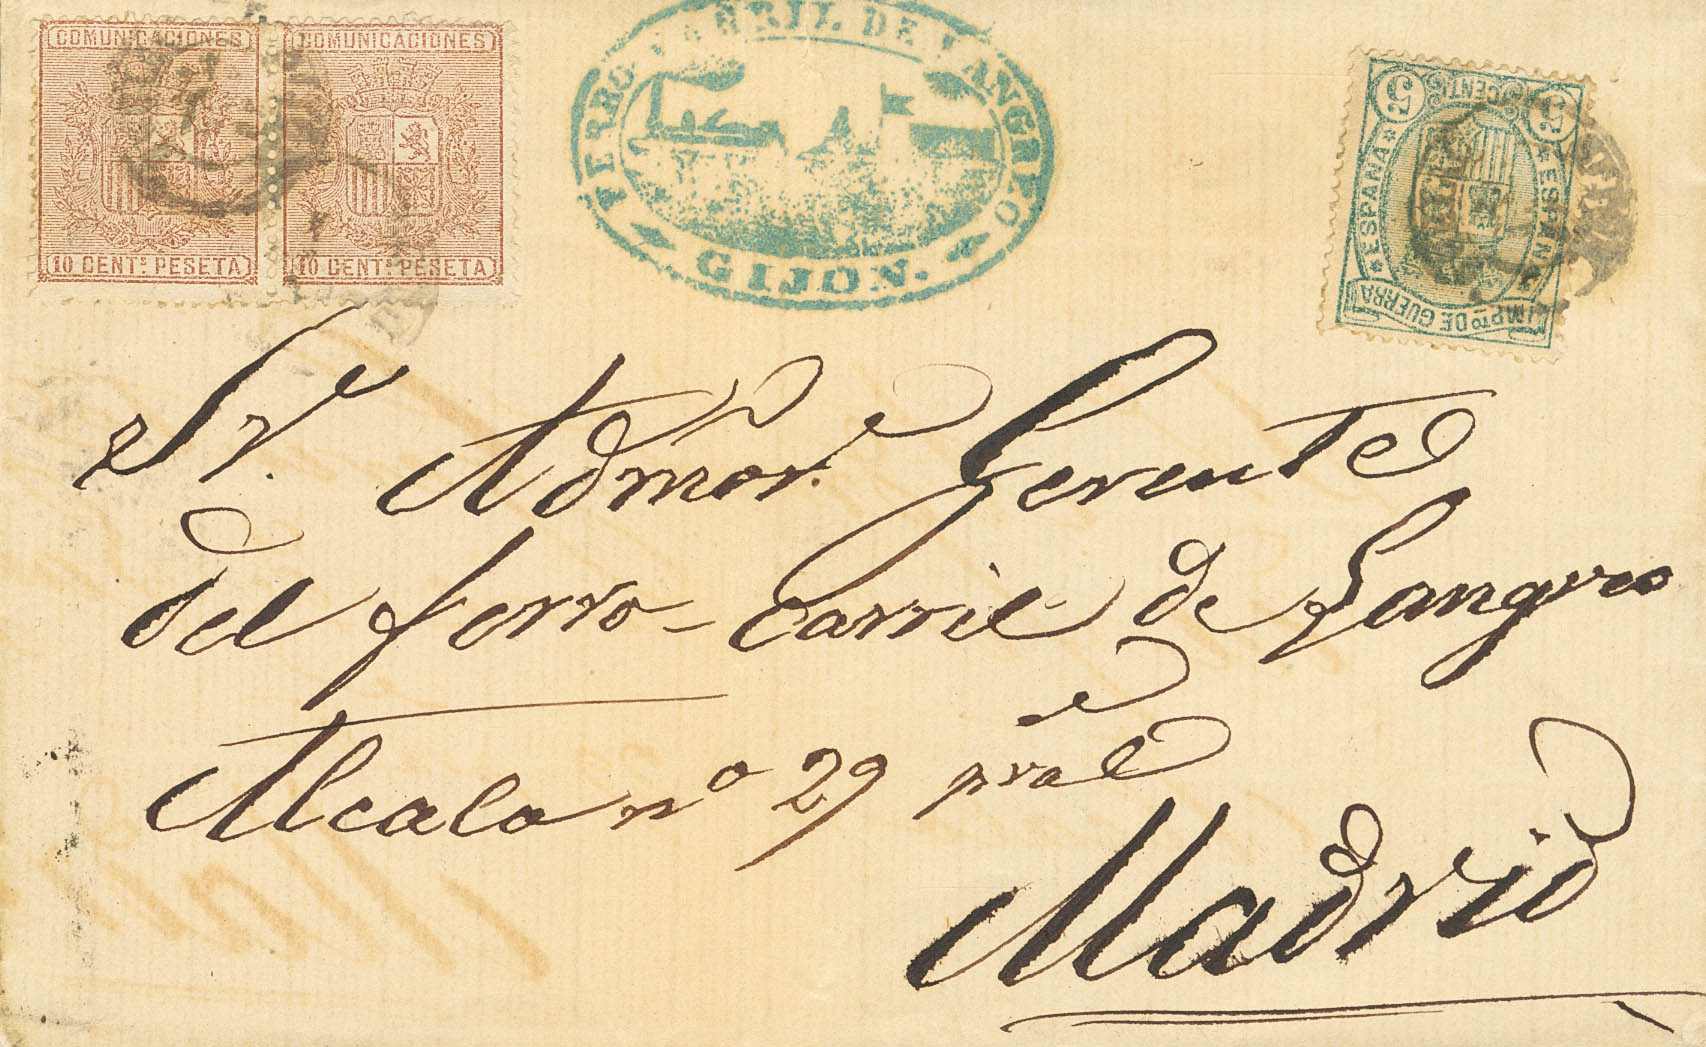 COMUNICACIONES
10 CENTS PESETA
COMUNICACIONES
10 CENTS PESETA
FERRO CARRIL DE LANGREO
GIJON.
5 CENTS 5
*ESPAÑA* *ESPAÑA*
IMPTO DE GUERRA
Sr. Admor. Gerente
del ferro-carril de Langreo
Alcala nº 29 pral
Madrid